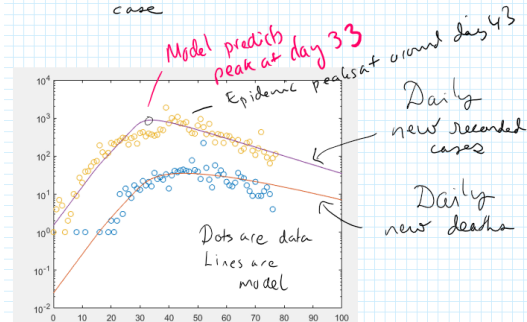 case
Model predicts
peak at day 33
Epidemic peaks at around day 43
Daily
new recorded
cases
Daily
new deaths
Dots are data
Lines are
model
10^4
10^3
10^2
10^1
10^0
10^-1
10^-2
0 10 20 30 40 50 60 70 80 90 100